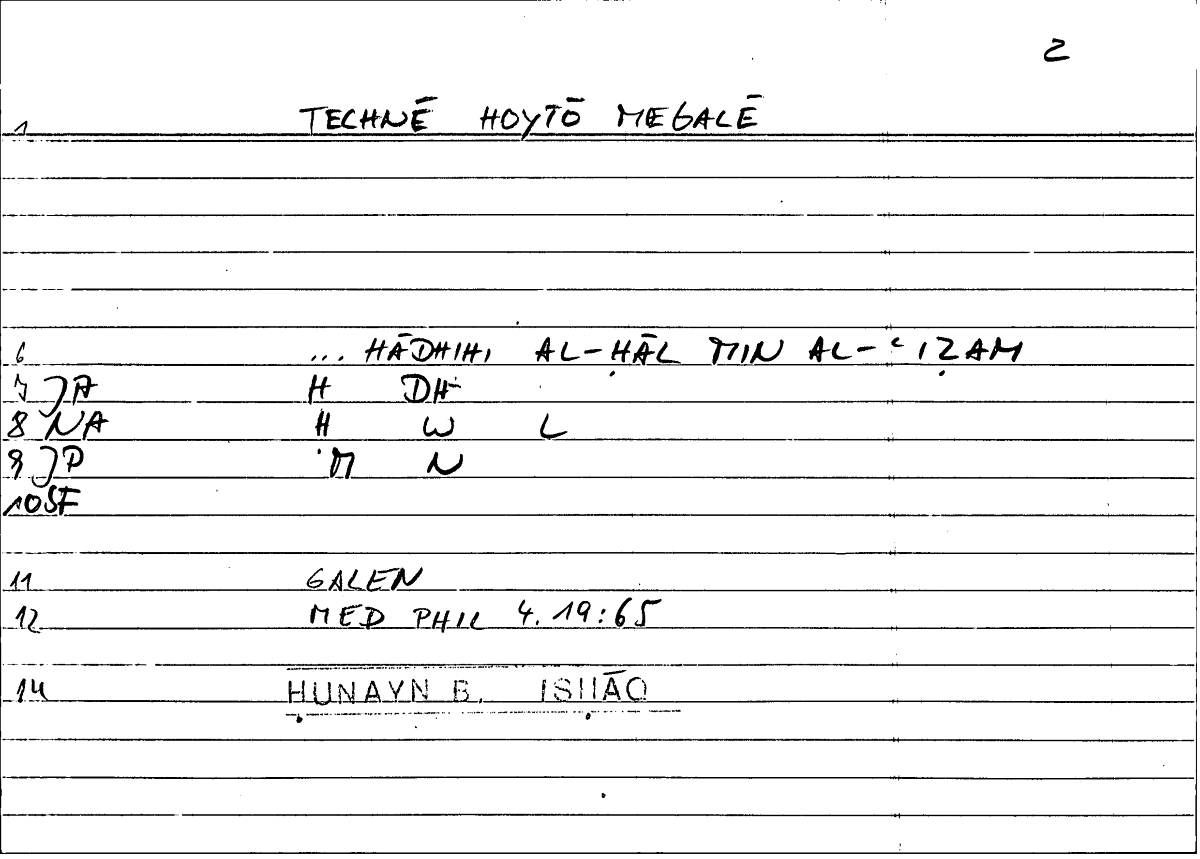 2
1 TECHNĒ HOYTŌ MEGALĒ
6 ... HĀDHIHI AL-ḤĀL MIN AL-ʿIẒAM
7 JA H DH
8 NA H W L
9 JP M N
10 SF
11 GALEN
12 MED PHIL 4.19:65
14 ḤUNAYN B. ISḤĀQ